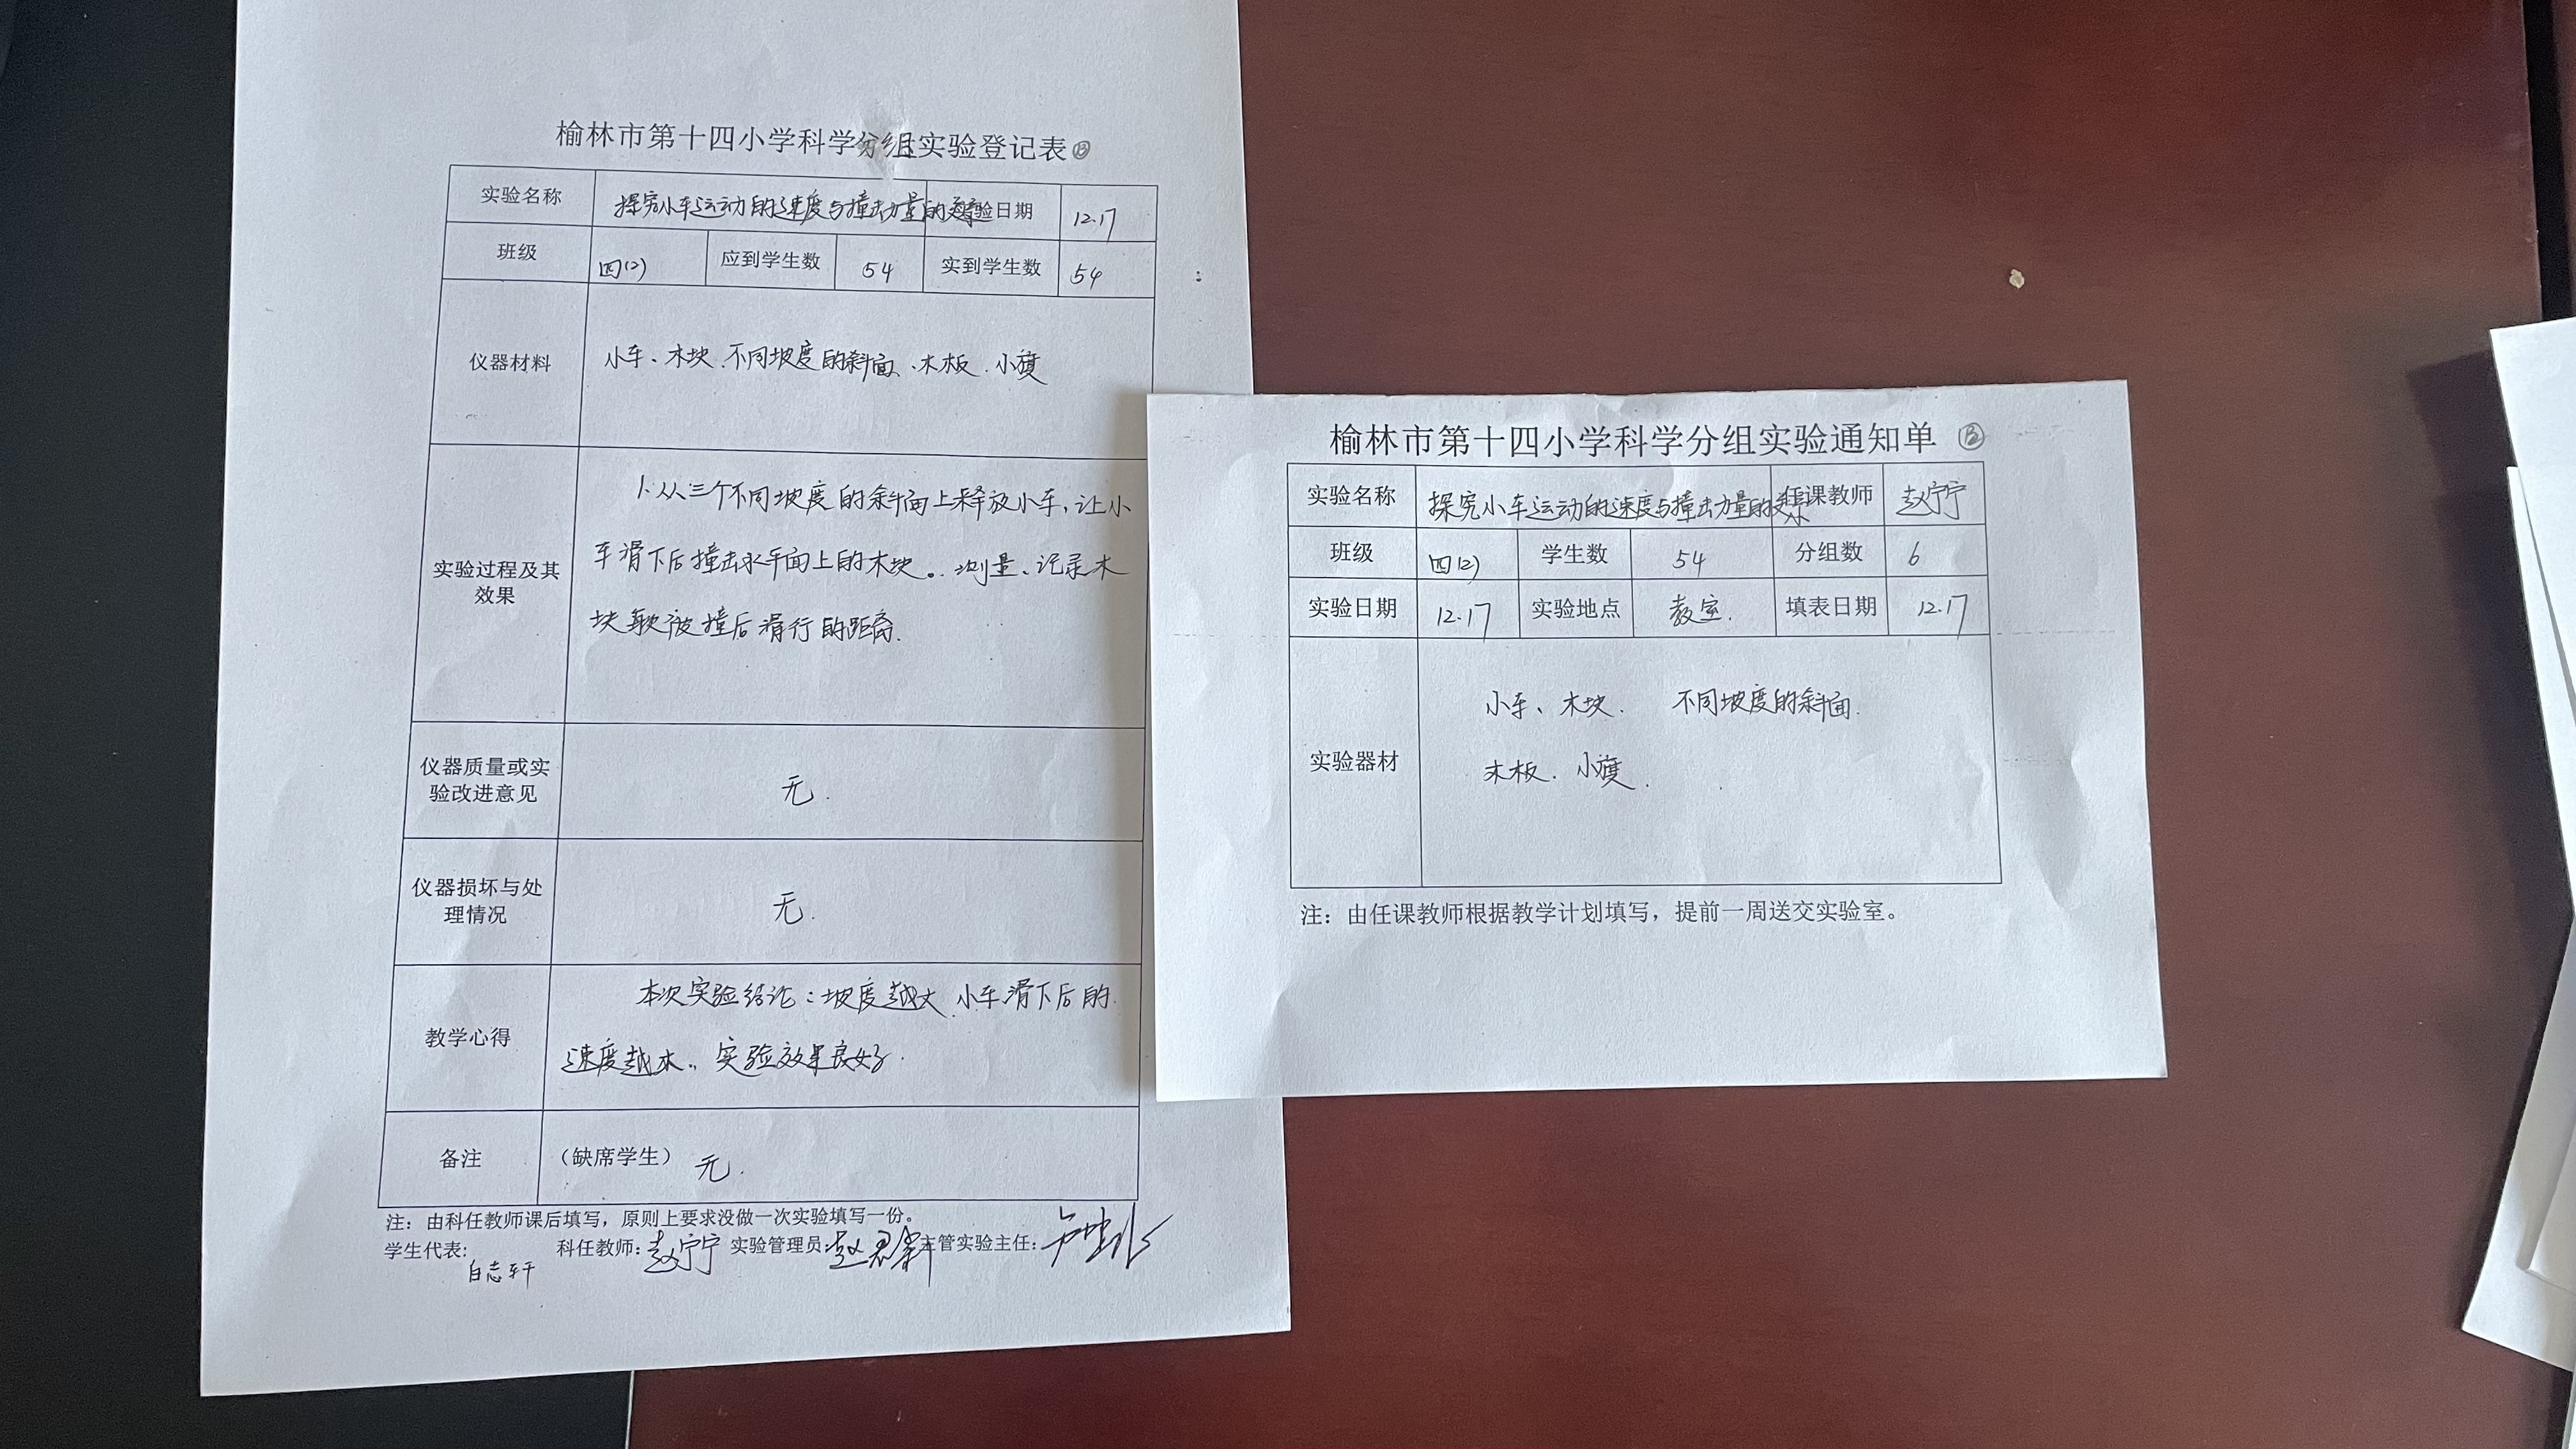 榆林市第十四小学科学分组实验登记表 ⑬
实验名称 探究小车运动的速度与撞击力量的 实验日期 12.17
班级 四(2) 应到学生数 54 实到学生数 54
仪器材料 小车、木块、不同坡度的斜面、木板、小旗
实验过程及其效果
1.从三个不同坡度的斜面上释放小车,让小
车滑下后撞击水平面上的木块。测量、记录木
块被撞后滑行的距离.
仪器质量或实验改进意见 无.
仪器损坏与处理情况 无.
教学心得
本次实验结论:坡度越大 小车滑下后的
速度越 实验效果良好.
备注 (缺席学生) 无.
注:由科任教师课后填写,原则上要求没做一次实验填写一份。
学生代表: 白志轩 科任教师: 赵宁宁 实验管理员: 主管实验主任:
榆林市第十四小学科学分组实验通知单 ⑬
实验名称 探究小车运动的速度与撞击力量的 任课教师 赵宁宁
班级 四(2) 学生数 54 分组数 6
实验日期 12.17 实验地点 教室. 填表日期 12.17
实验器材
小车、木块. 不同坡度的斜面.
木板. 小旗.
注:由任课教师根据教学计划填写,提前一周送交实验室。